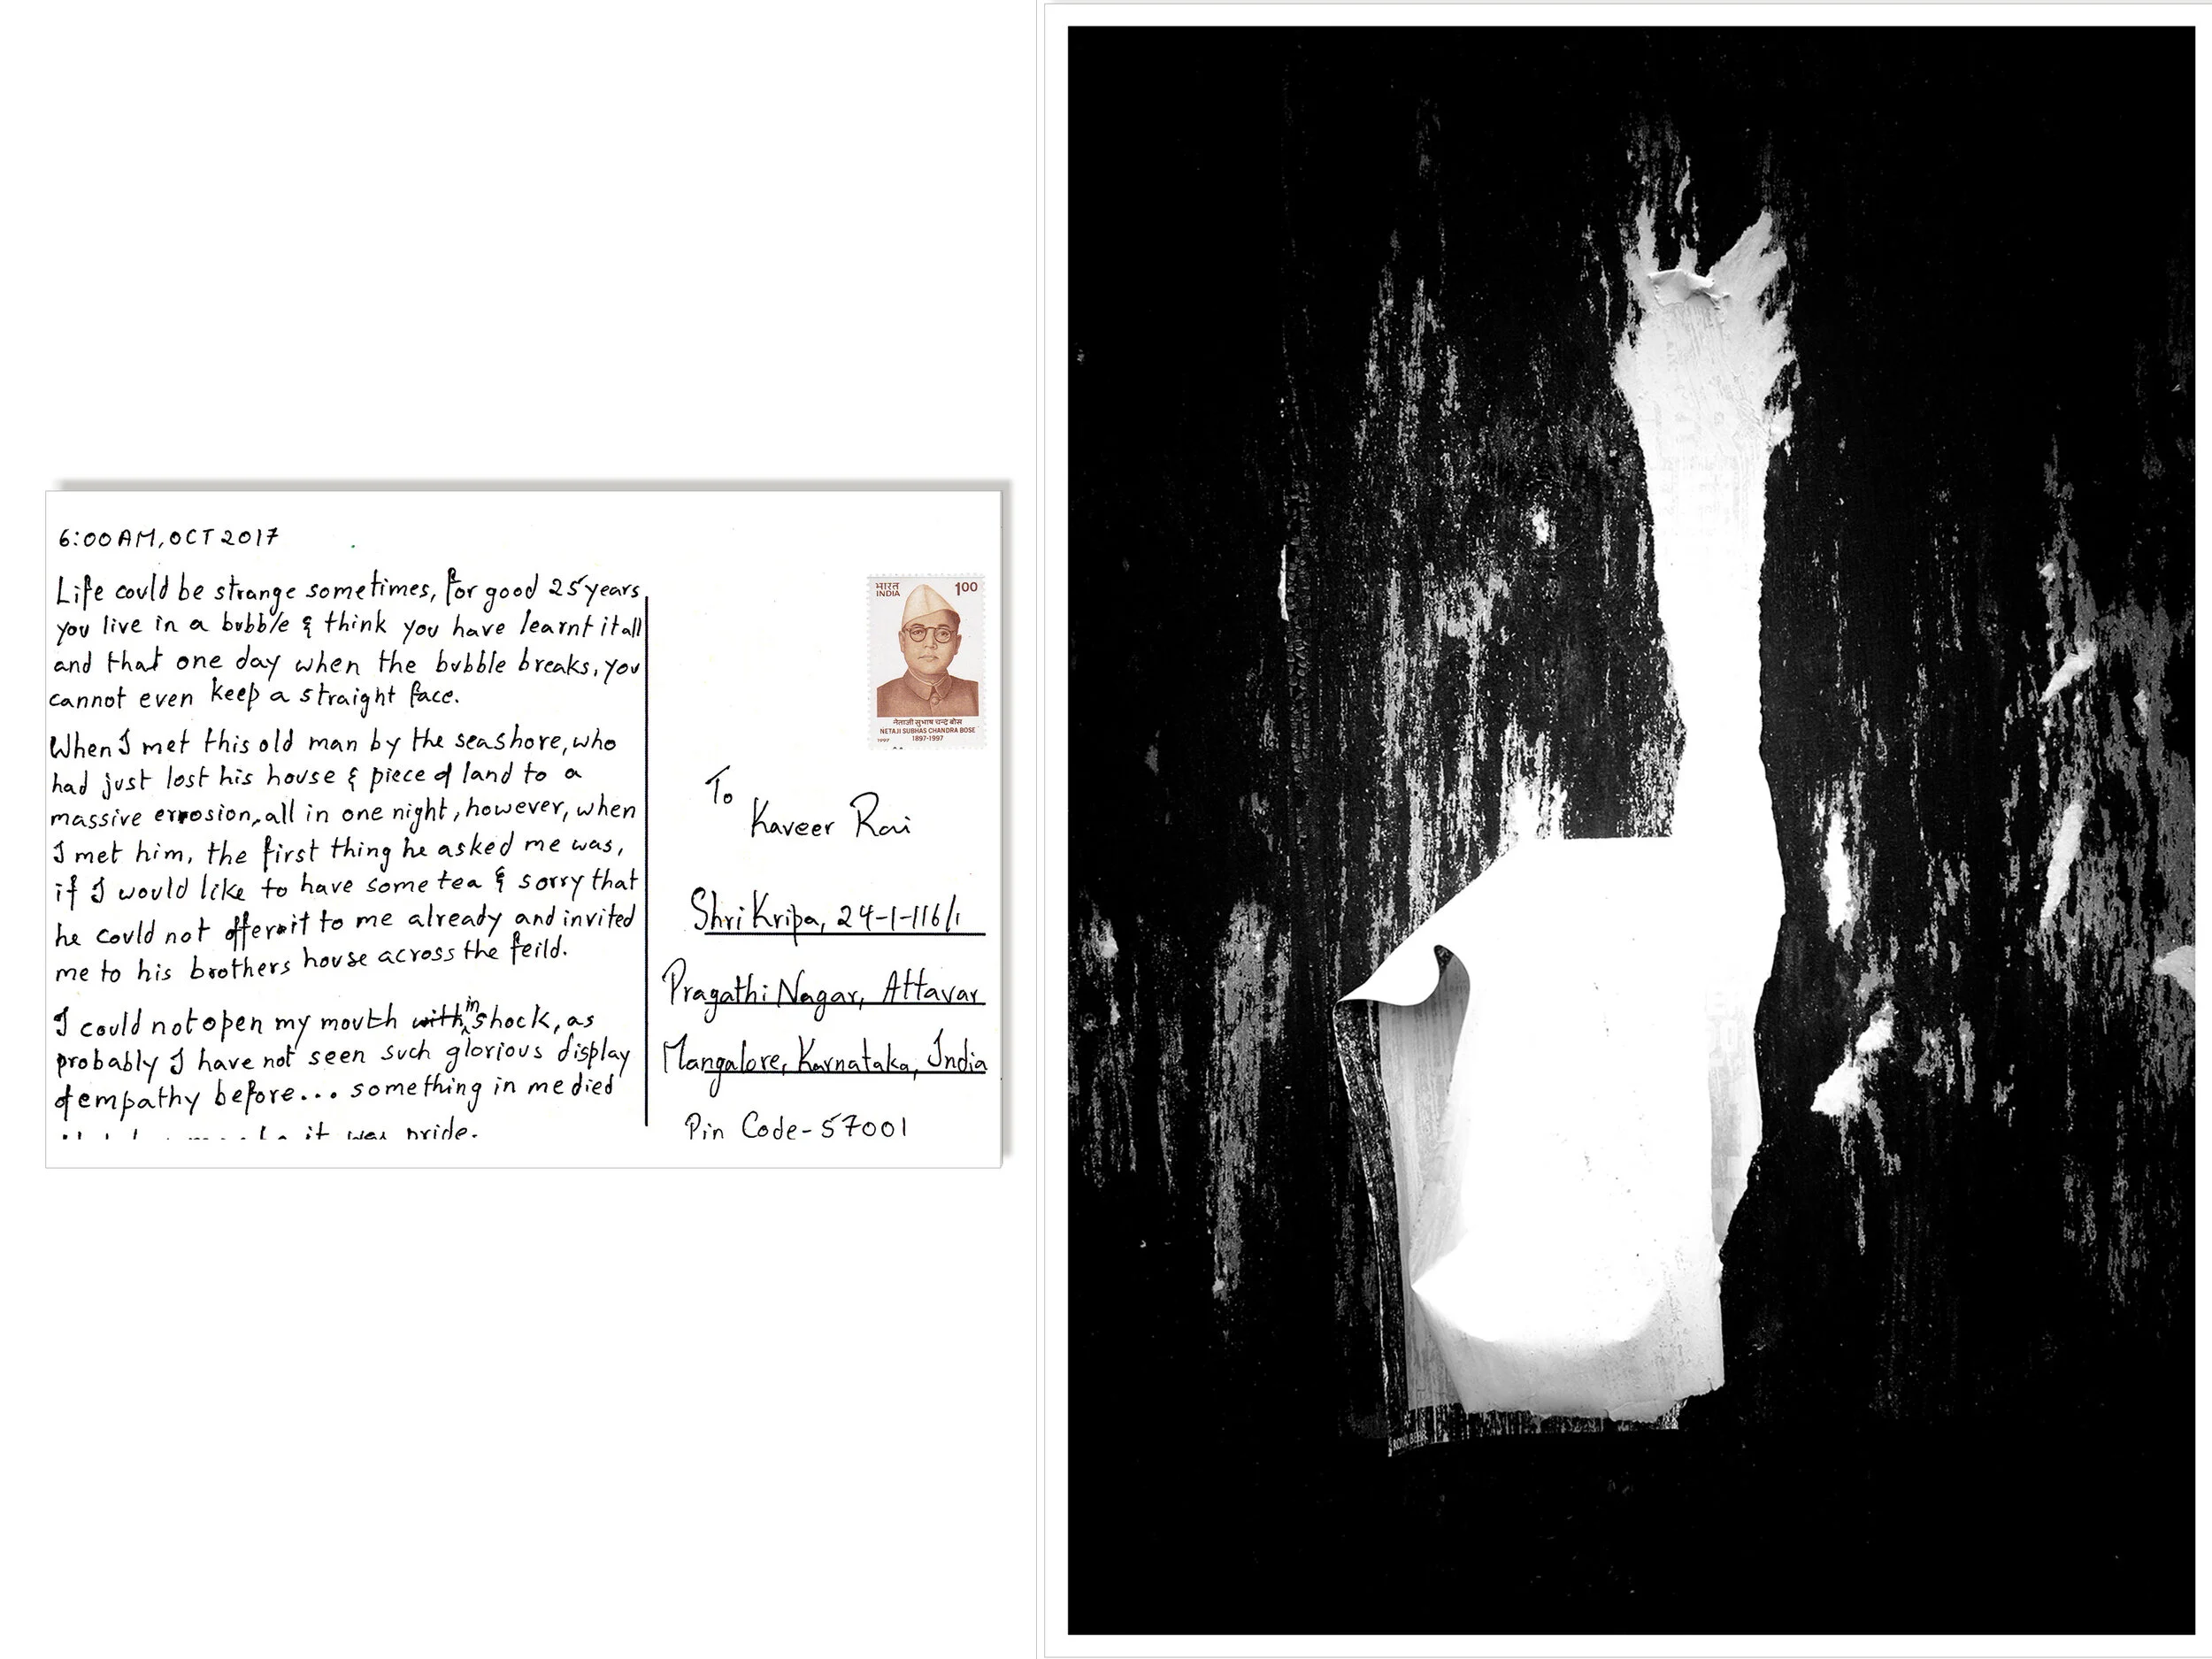 6:00 AM, OCT 2017
Life could be strange sometimes, for good 25 years
you live in a bubble & think you have learnt it all
and that one day when the bubble breaks, you
cannot even keep a straight face.
When I met this old man by the seashore, who
had just lost his house & piece of land to a
massive errosion, all in one night, however, when
I met him, the first thing he asked me was,
if I would like to have some tea & sorry that
he could not offer it to me already and invited
me to his brothers house across the feild.
I could not open my mouth with in shock, as
probably I have not seen such glorious display
of empathy before... something in me died
it was pride.
भारत
INDIA
1.00
नेताजी सुभाष चन्द्र बोस
NETAJI SUBHAS CHANDRA BOSE
1997
1897-1997
To
Kaveer Rai
Shri Kripa, 24-1-116/1
Pragathi Nagar, Attavar
Mangalore, Karnataka, India
Pin Code-57001